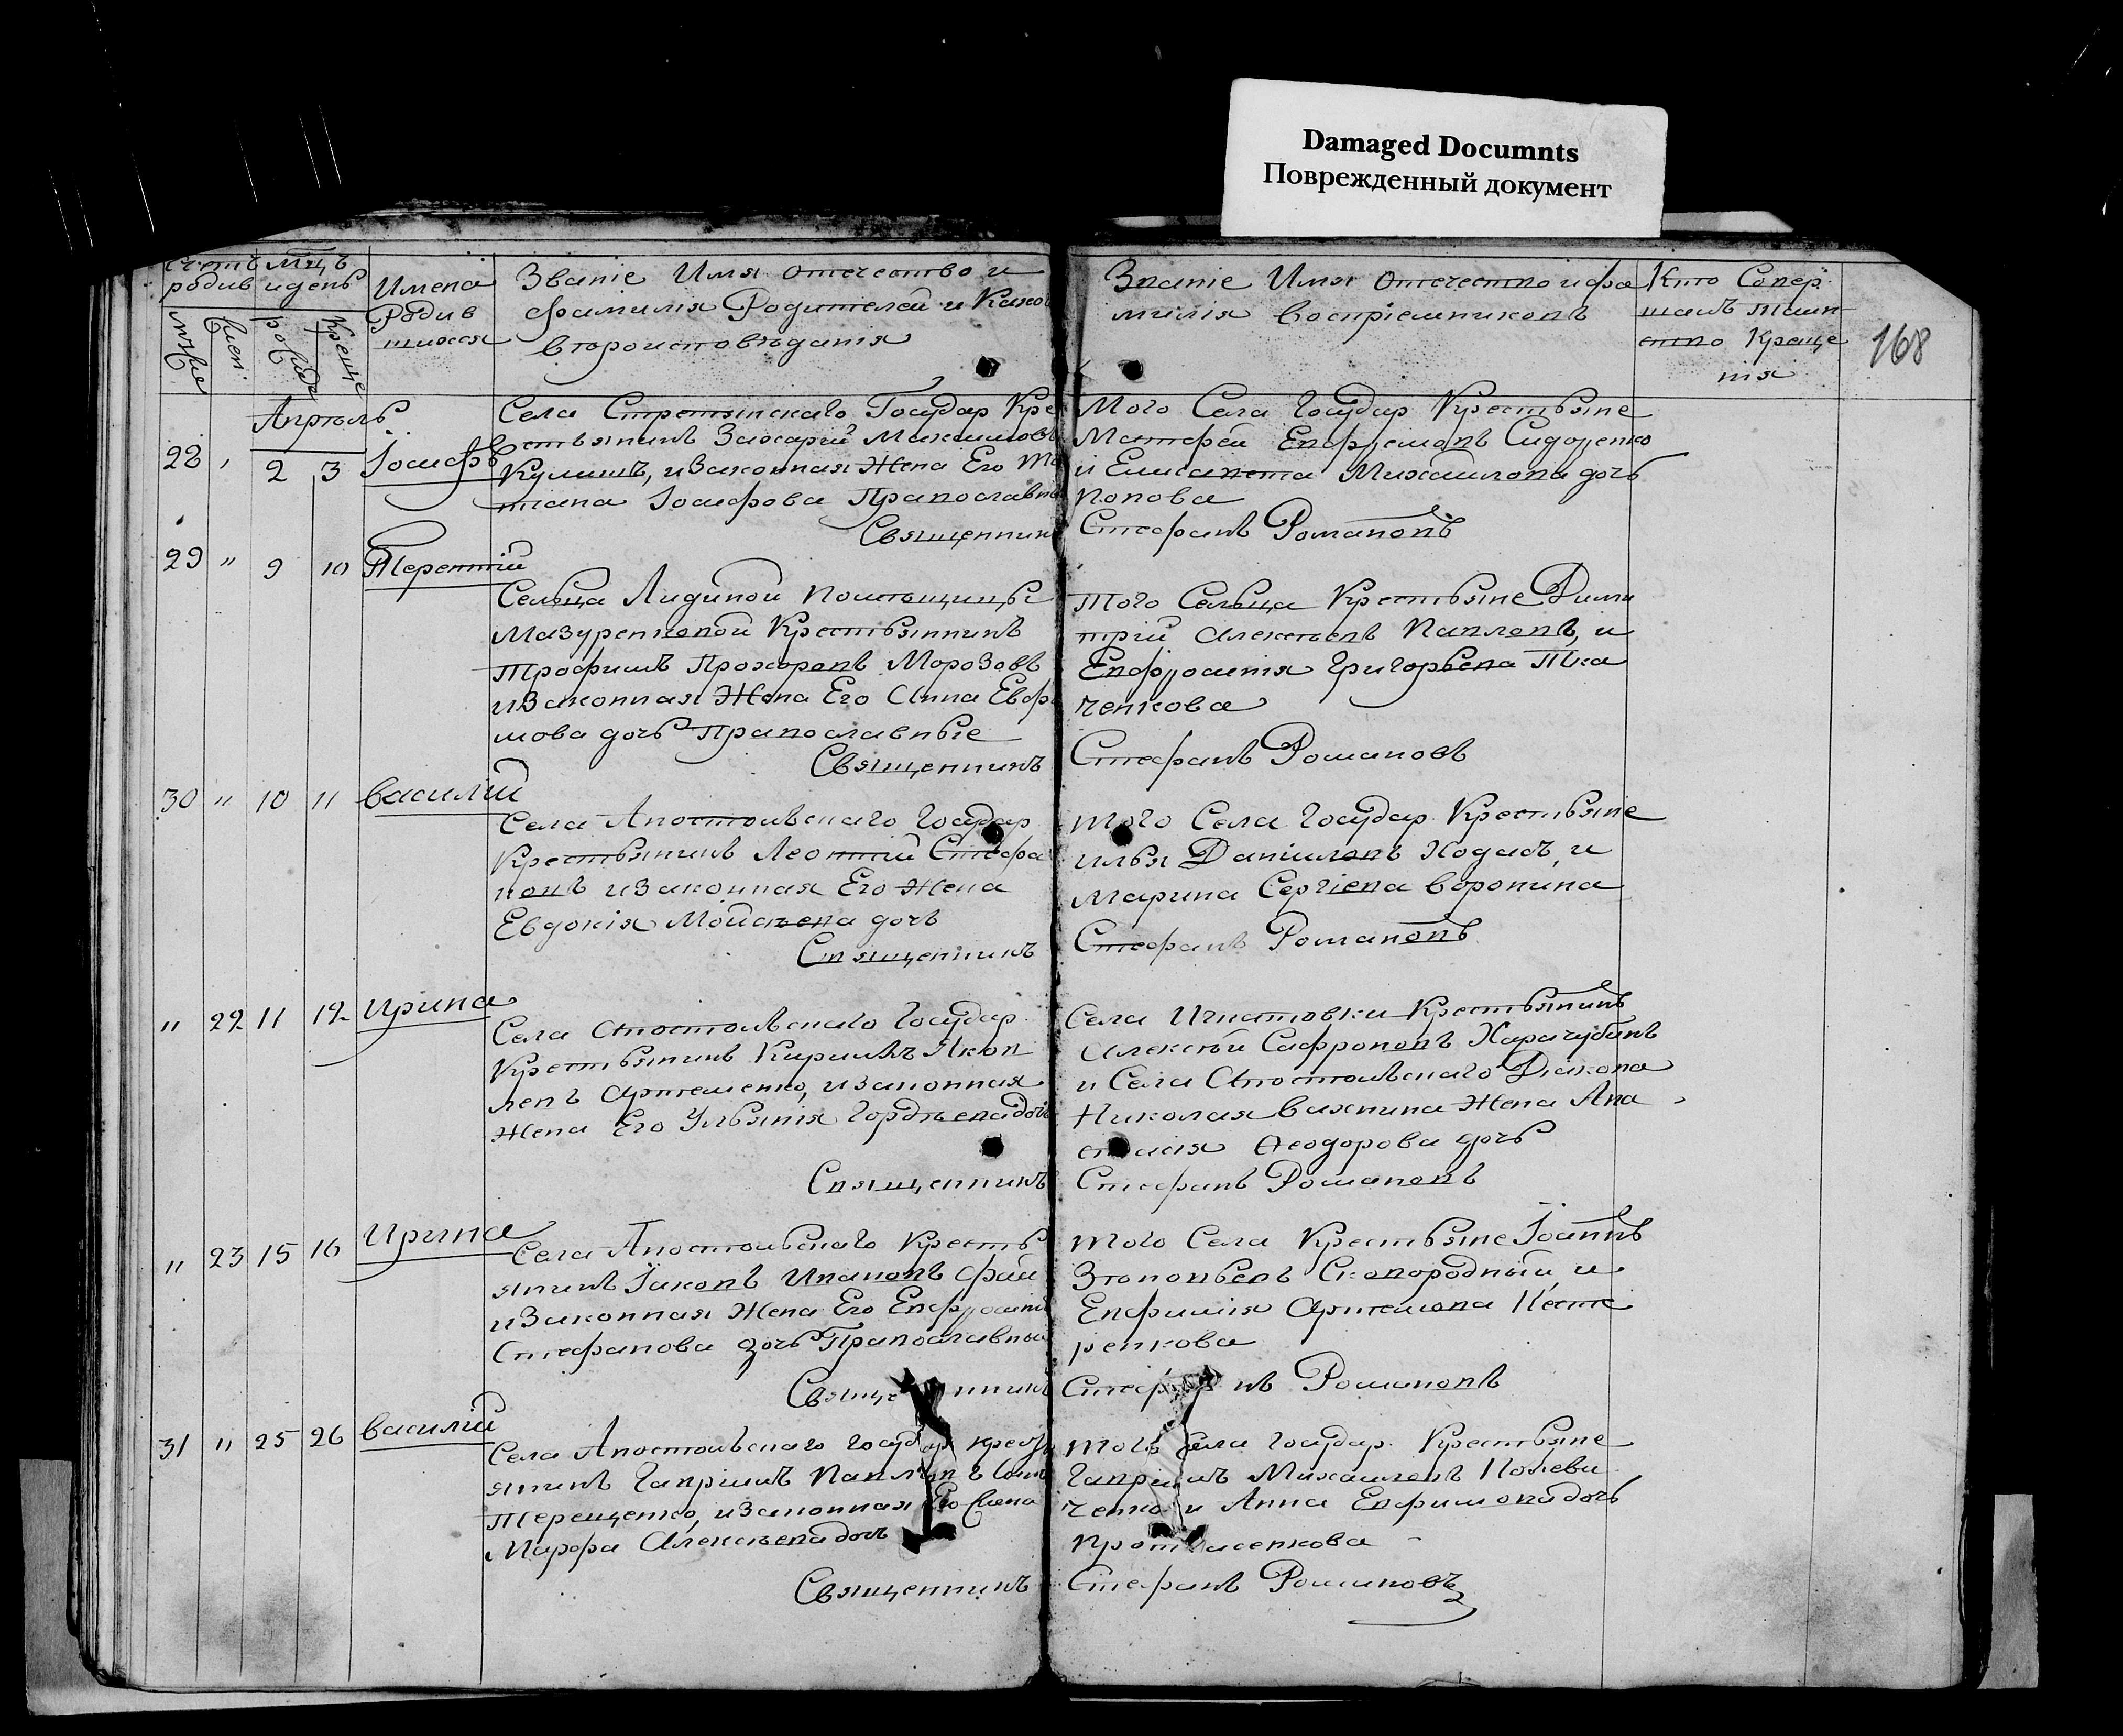 Damaged Documnts
Поврежденный документ
168
Счетъ родив
Мцъ и день
Имена Родив шихся
Званіе Имя отечество и
фамилія Родителей и Каков
вѣроисповѣданія
Званіе Имя Отечество и фа
милія воспріемниковъ
Кто Совер
шалъ Таин
ство Креще
нія
Апрѣль
28 2 3 Іосифъ
Села Стретынскаго Государ Кре
стьянинъ Захарій Максимовъ
Кулишъ, и Законная Жена Его
тіана Іосифова Православн
Священник
Того Села Государ Крестьяне
Матфей Евфремовъ Сидоренко
и Елисавета Михаилова дочь
Попова
Стефанъ Романовъ
29 " 9 10 Терентій
Сельца Лидиной Помѣщицы
Мазуренковой Крестьянинъ
Трофимъ Прохоровъ Морозовъ
и Законная Жена Его Анна Евфи
мова дочь Православные
Священникъ
Того Сельца Крестьяне Дими
трій Алексѣевъ Павловъ, и
Евфросинія Григорьева Тка
ченкова
Стефанъ Романовъ
30 " 10 11 Василій
Села Апостольскаго Государ
Крестьянинъ Леонтій Стефа
новъ и Законная Его Жена
Евдокія Мойсѣева дочь
Священникъ
Того Села Государ Крестьяне
Илья Даніиловъ Ходасъ, и
Марина Сергіева Воронина
Стефанъ Романовъ
" 22 11 12 Ирина
Села Апостольскаго Государ
Крестьянинъ Кириллъ Яков
левъ Артеменко, и законная
Жена Его Ульянія Гордѣева дочь
Священникъ
Села Игнатовки Крестьянинъ
Алексѣй Сафроновъ Харачубинъ
и Села Апостольскаго Діакона
Николая Вахнина Жена Ана
стасія Феодорова дочь
Стефанъ Романовъ
" 23 15 16 Ирина
Села Апостольскаго Кресть
янинъ Іаковъ Ивановъ
и Законная Жена Его Евфросинія
Стефанова дочь Православные
Священникъ
Того Села Крестьяне Іоаннъ
Зиновьевъ Сковородный, и
Евфимія Артемова Несте
ренкова
Стефанъ Романовъ
31 " 25 26 Василій
Села Апостольскаго Государ Кресть
янинъ Гавріилъ Павловъ
Терещенко, и Законная Его Жена
Марфа Алексѣева дочь
Священникъ
Того Села Государ. Крестьяне
Гавріилъ Михаиловъ Полеви
ченко и Анна Евфимова дочь
Стефанъ Романовъ